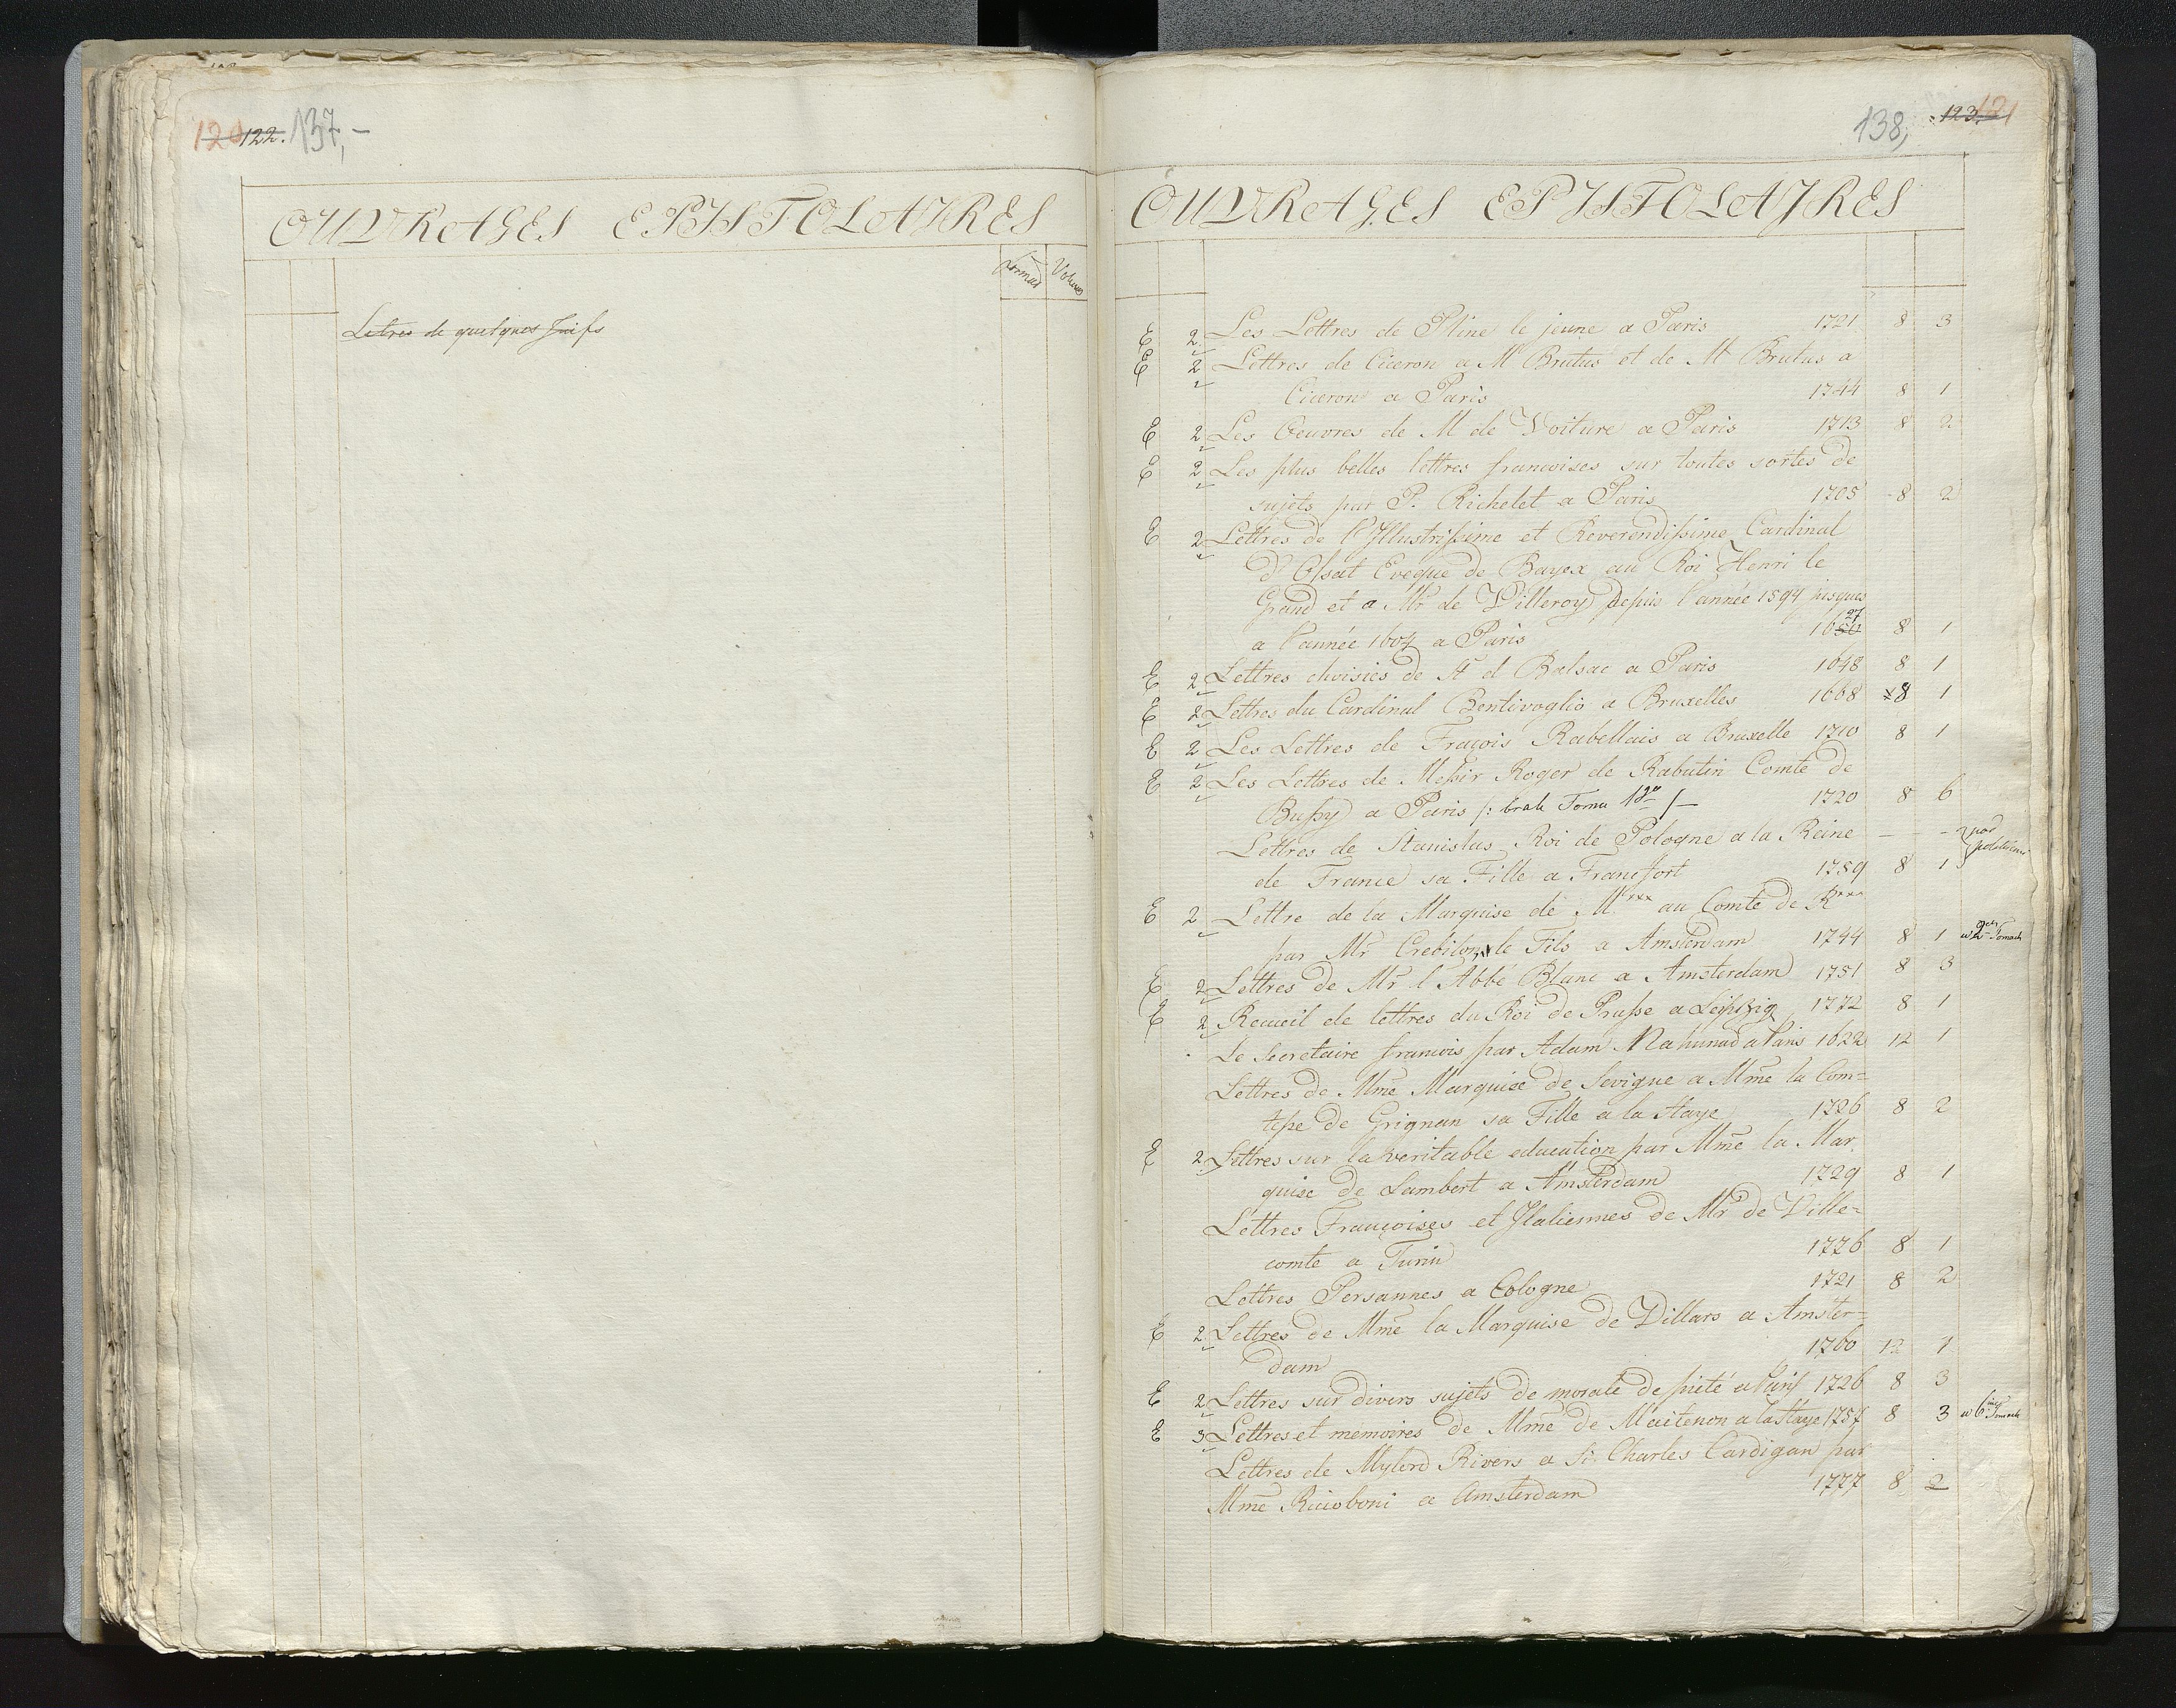 120 122. 137,-
OUVRAGES EPISTOLAYRES
Format Volumes
Letres de quelques Juifs
138, 123. 121
OUVRAGES EPISTOLAYRES
E 2 Les Lettres de Pline le jeune a Paris 1721 8 3
E 2 Lettres de Ciceron a M Brutus et de M Brutus a
Ciceron a Paris 1744 8 1
E 2 Les Oeuvres de M de Voiture a Paris 1713 8 2
E 2 Les plus belles lettres francoises sur toutes sortes de
sujets par P. Richelet a Paris 1705 8 2
E 2 Lettres de l'Illustrissime et Reverendissime Cardinal
d'Ossat Eveque de Bayex au Roi Henri le
Grand et a Mr de Villeroy depuis l'année 1594 jusques
a l'année 1604 a Paris 1650 27 8 1
E 2 Lettres choisies de Sr d Balsac a Paris 1648 8 1
E 2 Lettres du Cardinal Bentivoglio a Bruxelles 1668 x8 1
E 2 Les Lettres de Fraçois Rabellais a Bruxelle 1710 8 1
E 2 Les Lettres de Messir Roger de Rabutin Comte de
Bussy a Paris /: brak Tomu 1go /- 1720 8 6
Lettres de Stanislas Roi de Pologne a la Reine - - -
de France sa Fille a Francfort 1759 8 1
E 2 Lettre de la Marquise de M*** au Comte de R***
par Mr Crebilon le Fils a Amsterdam 1744 8 1 w 2ch Tomach
E 2 Lettres de Mr l'Abbé Blanc a Amsterdam 1751 8 3
E 2 Recueil de lettres du Roi de Prusse a Leipzig 1772 8 1
Le Secretaire francois par Adam a Paris 1622 12 1
Lettres de Mme Marquise de Sevigne a Mme la Com=
tesse de Grignan sa Fille a la Haye 1726 8 2
E 2 Lettres sur la veritable education par Mme la Mar
quise de Lambert a Amsterdam 1729 8 1
Lettres Françoises et Italiennes de Mr de Ville=
comte a Turin 1776 8 1
Lettres Persannes a Cologne 1721 8 2
E 2 Lettres de Mme la Marquise de Villars a Amster=
dam 1760 12 1
E 2 Lettres sur divers sujets de morale de pieté a Paris 1726 8 3
E 3 Lettres et mémoires de Mme de Maitenon a la Haye 1757 8 3 w 6ciu Tomach
Lettres de Mylord Rivers a Sir Charles Cardigan par
Mme Riccoboni a Amsterdam 1777 8 2